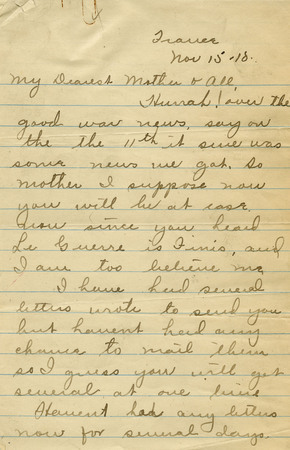 France
Nov 15-18.
My Dearest Mother & All,
Hurrah! over the
good war news, say on
the the 11th it sure was
some news we got. So
mother I suppose now
you will be at ease
now since you heard
Le Guerre is Finis, and
I am too believe me
I have had several
letters wrote to send you
but havent had any
chance to mail them
so I guess you will get
several at one time
Havent had any letters
now for several days.